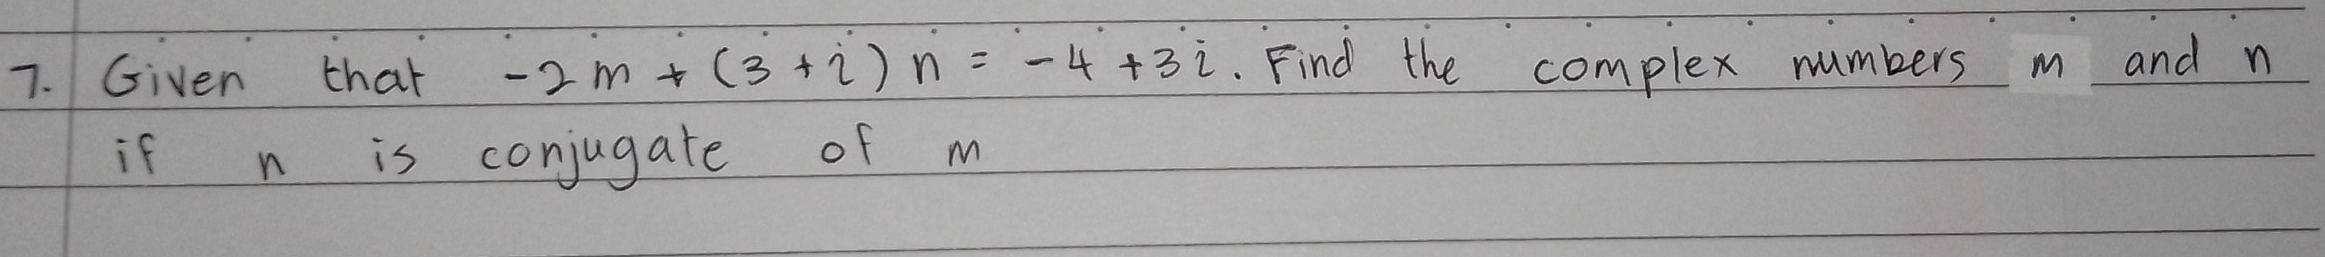 7. Given that -2m + (3+i)n = -4 +3i. Find the complex numbers m and n
if n is conjugate of m